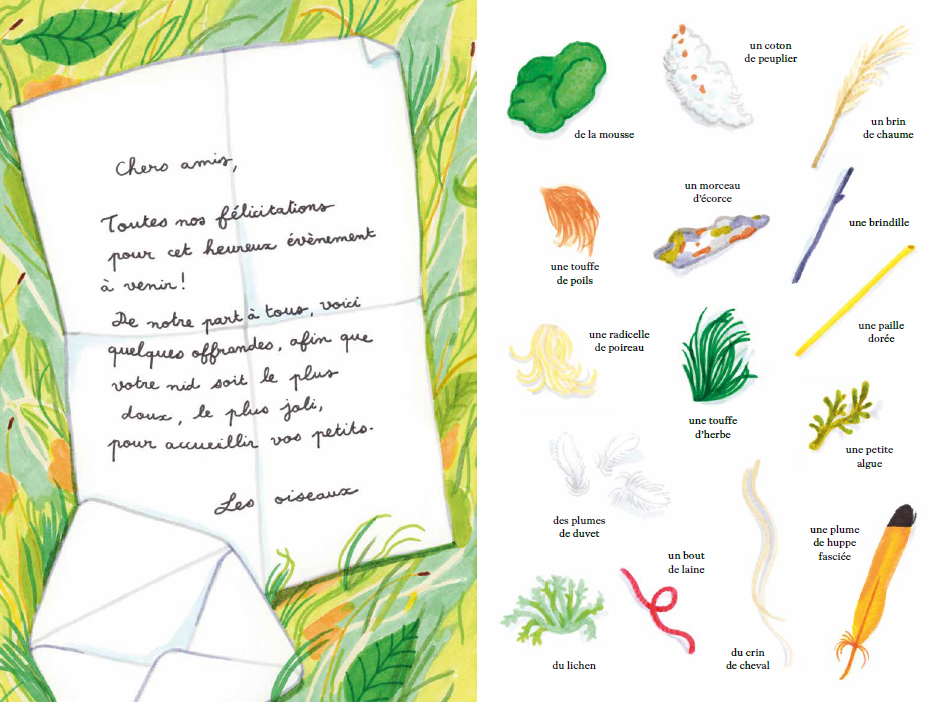 Chers amis,
Toutes nos félicitations
pour cet heureux évènement
à venir!
De notre part à tous, voici
quelques offrandes, afin que
votre nid soit le plus
doux, le plus joli,
pour accueillir vos petits.
Les oiseaux
de la mousse
un coton
de peuplier
un brin
de chaume
une touffe
de poils
un morceau
d'écorce
une brindille
une radicelle
de poireau
une touffe
d'herbe
une paille
dorée
une petite
algue
des plumes
de duvet
un bout
de laine
une plume
de huppe
fasciée
du lichen
du crin
de cheval